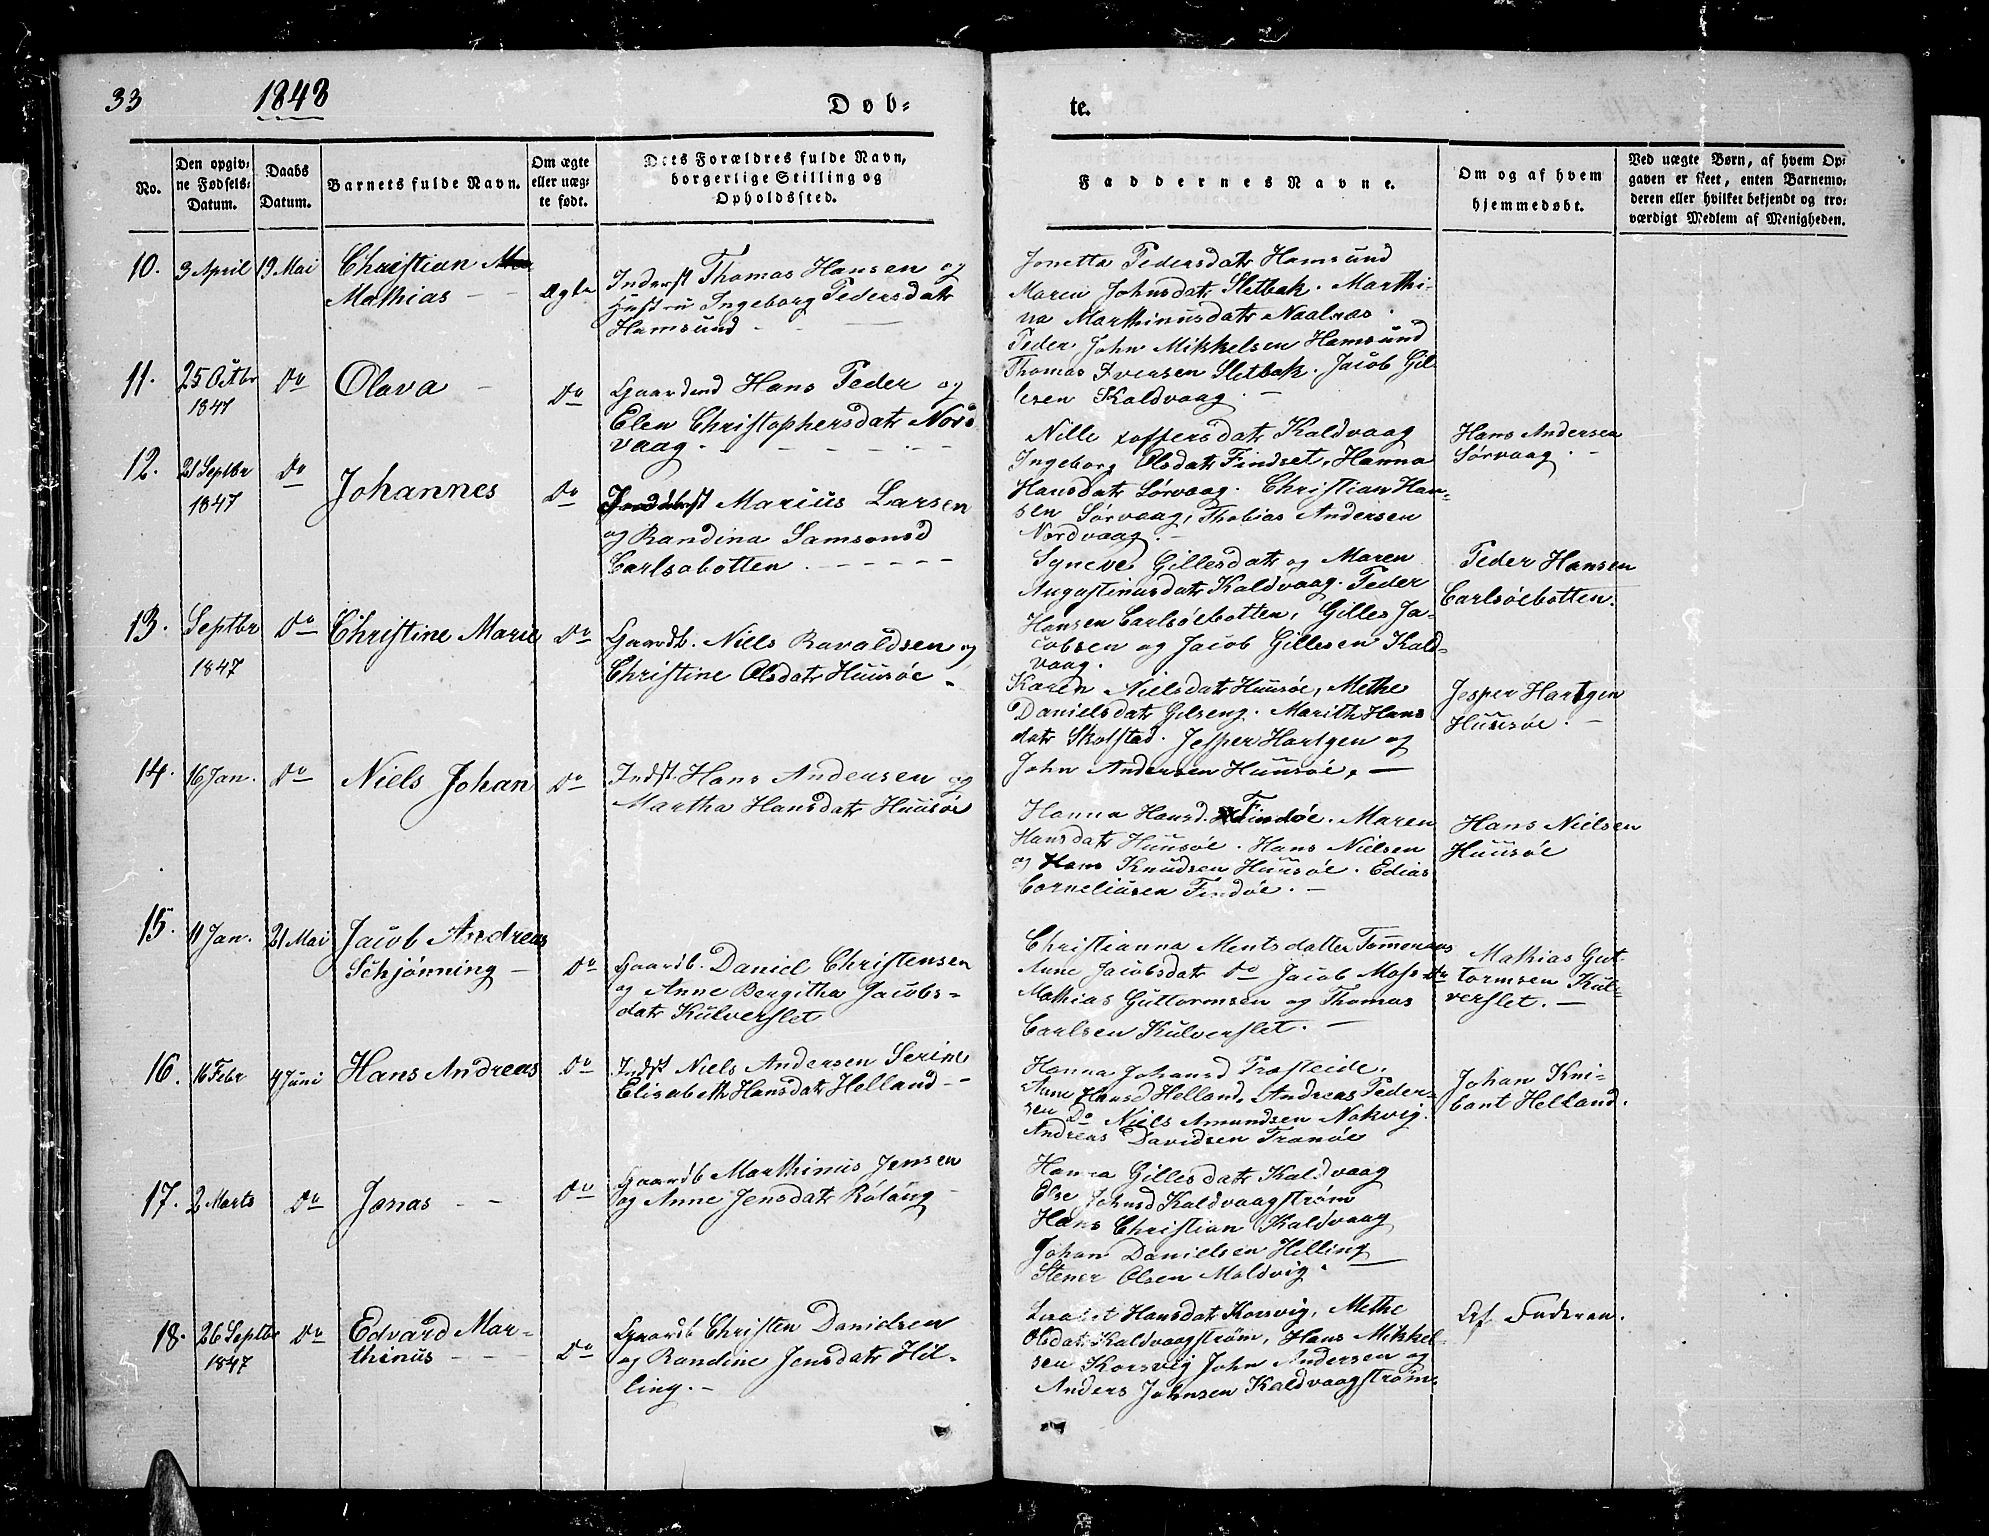 33 1848 Døb-
te.
No.
Den opgiv-
ne Fødsels-
Datum.
Daabs
Datum.
Barnets fulde Navn.
Om ægte
eller uæg-
te født.
Dets Forældres fulde Navn,
borgerlige Stilling og
Opholdssted.
Faddernes Navne.
Om og af hvem
hjemmedøbt.
Ved uægte Børn, af hvem Op-
gaven er skeet, enten Barnemo-
deren eller hvilket bekjendt og tro-
værdigt Medlem af Menigheden.
10. 3 April 19 Mai Christian
Mathias - - Ægte
Inderst Thomas Hansen og
Hustru Ingeborg Pedersdatr
Hamsund - -
Jonetta Pedersdatr Hamsund
Maren Johnsdatr Sletbak. Marthi-
na Marthinusdatr Naalnæs.
Peder John Mikkelsen Hamsund
Thomas Iversen Sletbak. Jacob Gil-
lesen Kaldvaag. -
11. 25 Octbr Do Olava - Do
1847
Gaardmd Hans Peder og
Elen Christophersdatr Nord
vaag. - - - -
Nille Xoffersdatr Kaldvaag
Ingeborg Olsdatr Findset, Hanna
Hansdatr Sørvaag. Christian Han-
sen Sørvaag, Thobias Andersen
Nordvaag. -
Hans Andersen
Sørvaag. -
12. 21 Septbr Do Johannes Do
1847
Inderst Marius Larsen
og Randina Samsonsd
Carlsøbotten. - - - - -
Syneve Gillesdatr og Maren
Augustinusdatr Kaldvaag. Peder
Hansen Carlsøebotten, Gilles Ja-
cobsen og Jacob Gillesen Kald-
vaag.
Peder Hansen
Carlsøebotten.
13. Septbr Do Christine Marie Do
1847
Gaardb. Niels Ravaldsen og
Christine Olsdatr Huusøe -
Karen Nielsdatr Huusøe, Methe
Danielsdatr Gilseng. Marith Hans
datr Skolstad. Jesper Hartgen og
John Andersen Huusøe. -
Jesper Hartgen
Huusøe. -
14. 16 Jan. Do Niels Johan Do
Indst. Hans Andersen og
Martha Hansdatr Huusøe
Hanna Hansd. Findøe. Maren
Hansdatr Huusøe. Hans Nielsen
og Hans Knudsen Huusøe. Edias
Corneliusen Findøe. -
Hans Nielsen
Huusøe
15. 11 Jan. 21 Mai Jacob Andreas
Schjønning - Do
Gaardb. Daniel Christensen
og Anne Bergitha Jacobs-
datr Kulverslet
Christianna Mentsdatter
Anne Jacobsdatr Do Jacob Do
Mathias Guttormsen og Thomas
Carlsen Kulverslet. -
Mathias Gut
tormsen Kul-
verslet. -
16. 16 Febr 4 Juni Hans Andreas Do
Indst Niels Andersen Serine
Elisabeth Hansdatr Helland - -
Hanna Johansd
Anne Hansd Helland, Andreas Peder-
sen Do Niels Amundsen Nokvig.
Andreas Davidsen Tranøe
Johan Kni-
bant Helland.
17. 2 Marts Do Jonas - - Do
Gaardb Marthinus Jensen
og Anne Jensdatr Rötang -
Hanna Gillesdatr Kaldvaag
Else Johnsd Kaldvaagstrøm
Hans Christian Kaldvaag
Johan Danielsen Hilling
Stener Olsen Moldvig.
18. 26 Septbr Do Edvard Mar-
1847 thinus - - - Do
Gaardb Christen Danielsen
og Randine Jensdatr Hil-
ling. -
Hansdat Korsvig, Methe
Olsdatr Kaldvaagstrøm, Hans Mikkel-
sen Korsvig John Andersen og
Anders Johnsen Kaldvaagstrøm.
Af Faderen.